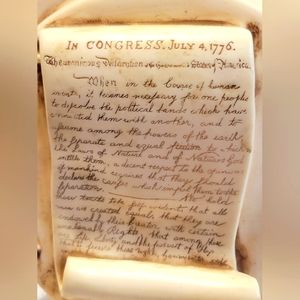 IN CONGRESS, JULY 4, 1776.
The unanimous Declaration of the States of America
When in the Course of human
events, it becomes necessary for one people
to dissolve the political bands which have
connected them with another, and to
assume among the powers of the earth,
the separate and equal station to which
the Laws of Nature and of Nature's God
entitle them, a decent respect to the opinions
of mankind requires that they should
declare the causes which impel them to the
separation. We hold
these truths to be self evident that all
men are created equal, that they are
endowed by their Creator with certain
unalienable Rights, that among these
are Life, and the pursuit of
that to secure these rights, Governments